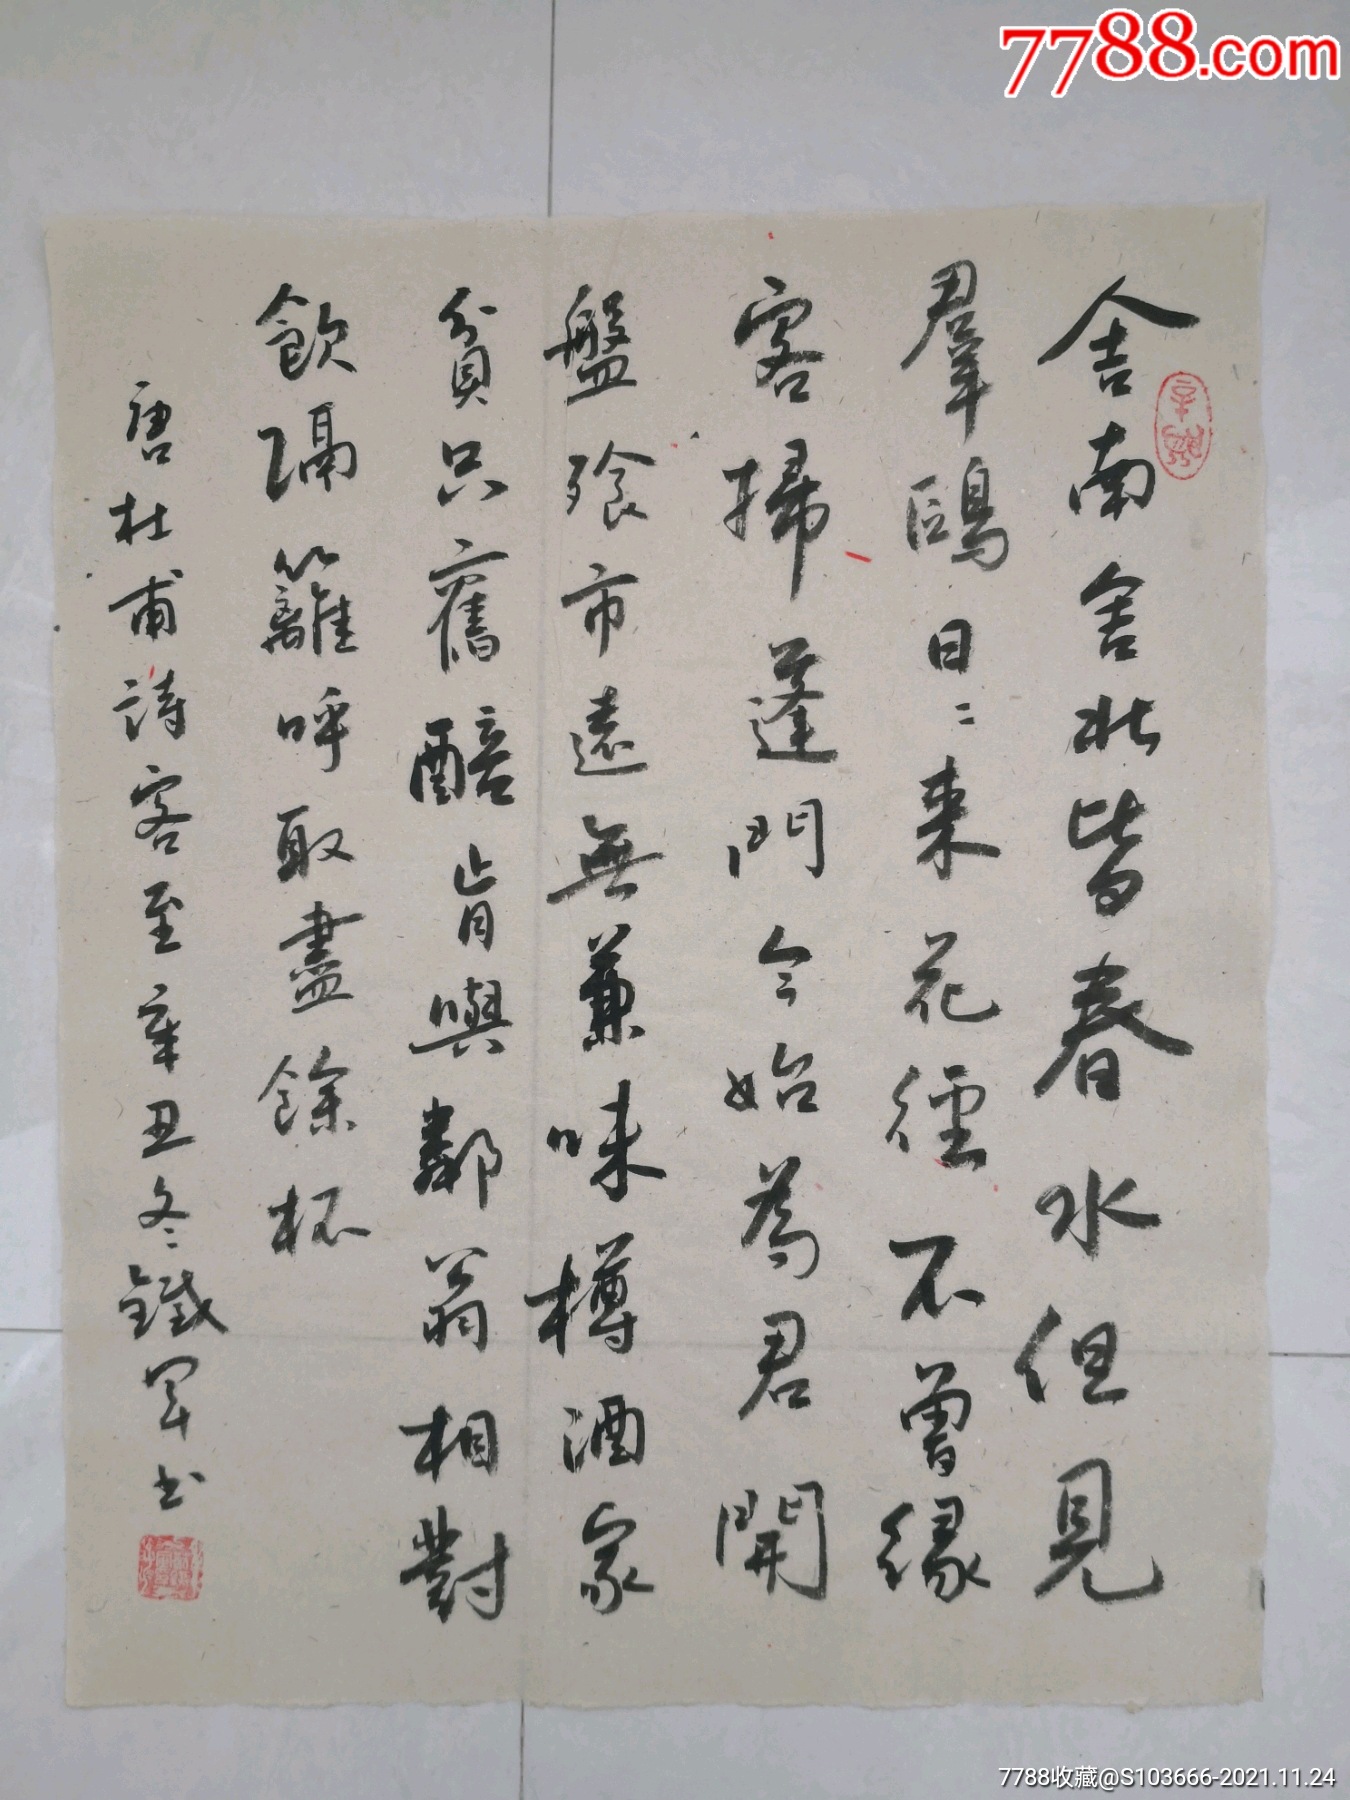 7788.com
舍南舍北皆春水但見
羣鷗日〻来花徑不曾缘
客掃蓬門今始為君開
盤飱市遠無蒹味樽酒家
貧只舊醅肯與鄰翁相對
飲隔籬呼取盡餘杯
唐杜甫詩客至辛丑冬鐵军书
7788收藏@S103666-2021.11.24